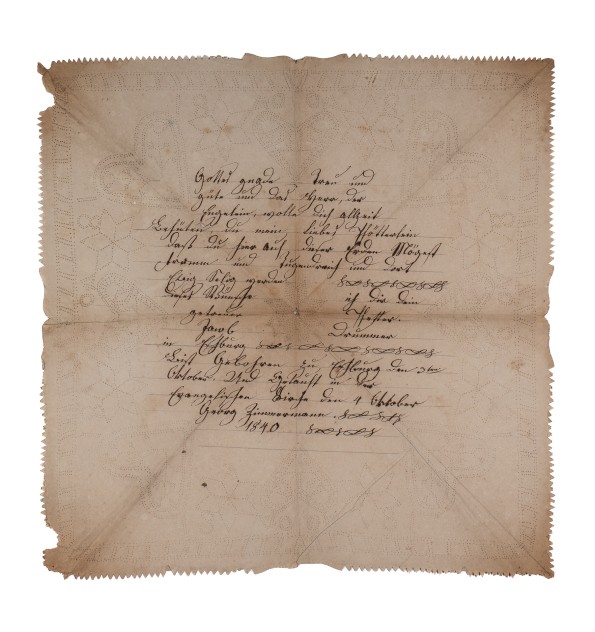 Gottes gnade Treu und
güte und das Heer, der
Engelein, wolle dich allzeit
Behüten, du mein liebes Pfötterlein
daß du hier auf dieser Erden Mögest
fromm und tugendreich und dort
Ewig Selig werden
dieses Wünsche ich dir dein
getreuer Pfetter.
Jacob Drummer
in Eschburg
Gebohren zu Eschburg den 3ten
Oktober. Und Getauft in der
Evangelischen Kirche den 4 Oktober
Georg Zimmermann.
1840